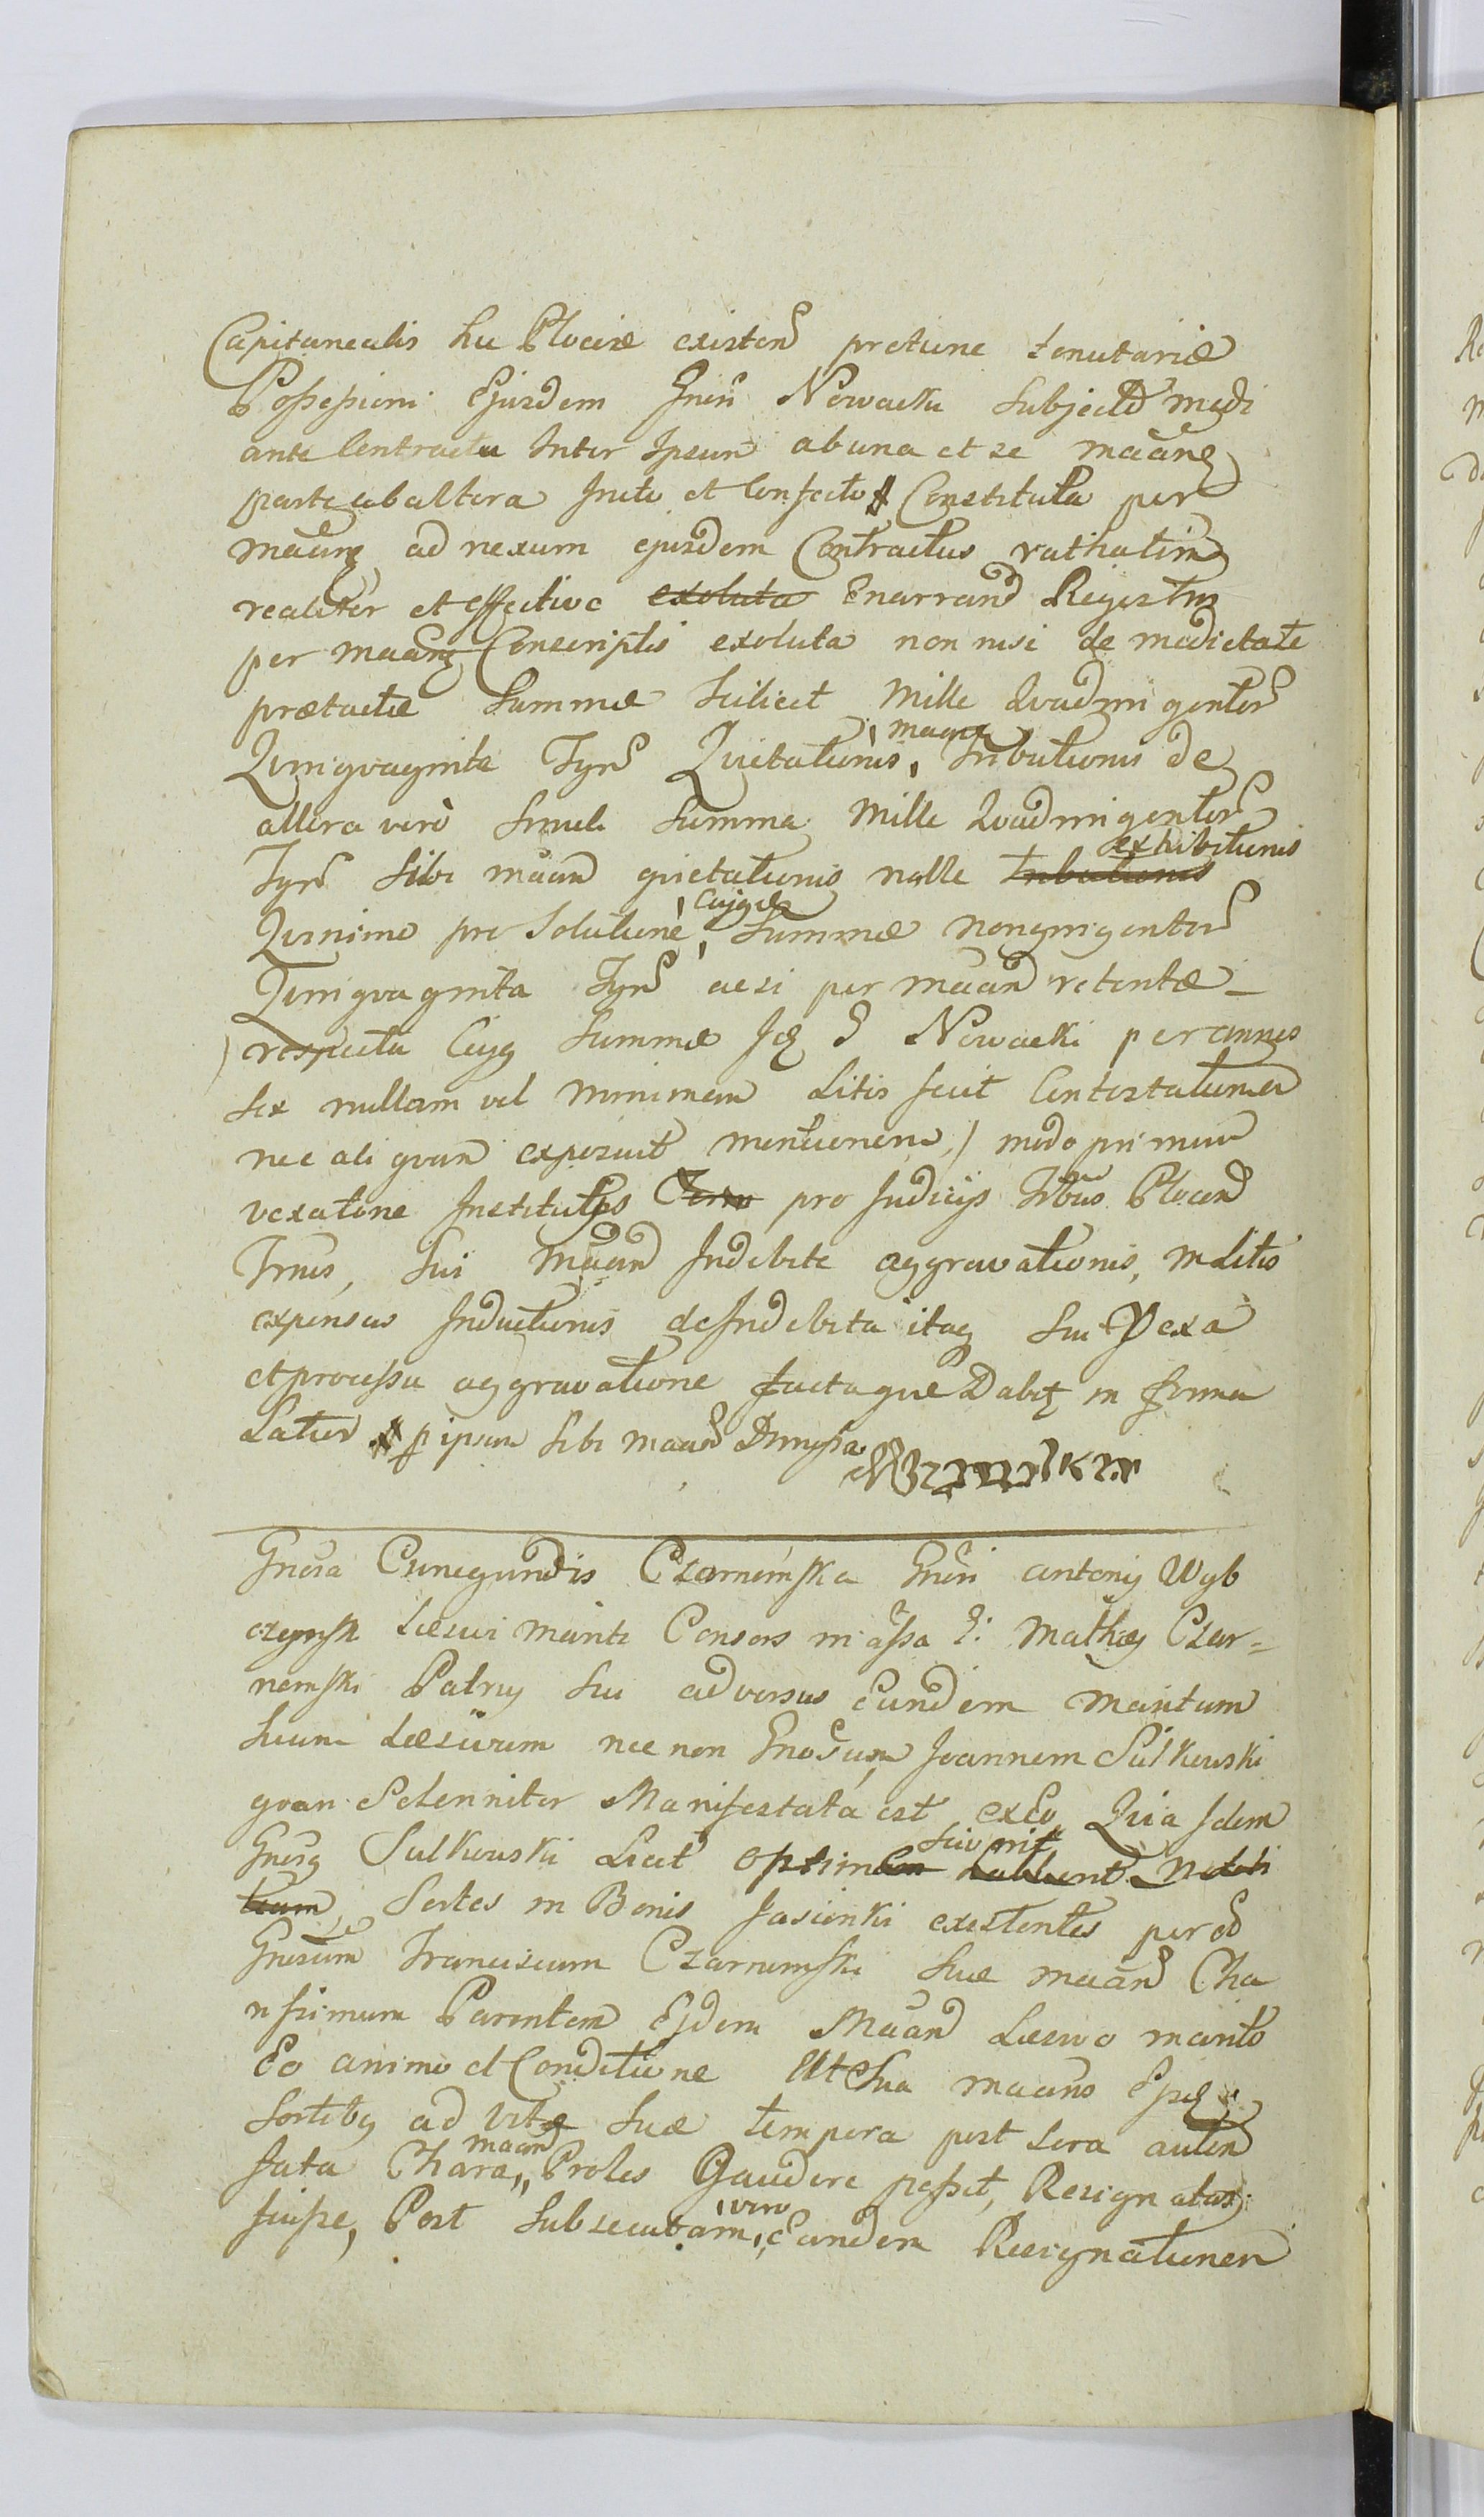 Capitanealis hic Plociæ existen pretunc tenutariæ
Possessioni Ejusdem Gnsi Nowacki Subject medi
ante Contractu Inter Ipsum ab una et se maãng
parte ab altera Inito et Confecto Constituta per
maãng ad nexum ejusdem Contractus rathatim
realiter et effective exoluta Enarrand Regestris
per maãng Conscriptis exoluta non nisi de medietate
prætactæ Summæ Scilicet Mille Quadringentor
Quinquaginta Tynf Quietationis, maang Tributionis de
altera verò Simili Summa Mille Quadringentor
Tynf Sibi maan quietationis nolle Tributionis exhibitionis
Quinimo pro Solutione, Cujque Summæ nongingentor
Quinquaginta Tynf acsi per maan retentæ _
) respectu Cujq Summæ Jdq G Nowacki per annos
Sex nullam vel minimam Litis fecit Contestationem
nec ali quam exposuit mentionem,) modo primum
vexatione Institutis Term pro Judicijs Tribus Plocen
Trnis, Sui maan Indebite aggravationis, in Litis
expensas Inductionis de Indebita itaq Sui Vexa
et processu aggravatione factaque Dabit in forma
Latior p ipsum Sibi maan Dimissa

Gnosa Cunegundis Czarnemska Gnsi Antonij Wyb
czynsk Læsivi mariti Consors in assa G: Mathiæ Czar=
nemski Patruj Sui adversus Eundem maritum
Suum Læsivum nec non Gnosum Joannem Sulkowski
quam Solenniter Manifestata est ex Eo Quia Idem
Gnosg Sulkowski Licet optime Sciverit habuerit Notiti
tiam, Sortes in Bonis Jasionki existentes per od
Gnosum Franciscum Czarnemski Suæ maan Cha
rissimum Parentem Ejdem Maan Læsivo marito
Eo animo et Conditione Ut Sua maans Ejsdq
Sortibg ad vitæ Suæ tempora post Sera autem
fata Chara maan Proles Gaudere possit, Resignatas
fuisse, Post Subsecutam, vero Eandem Resignationem